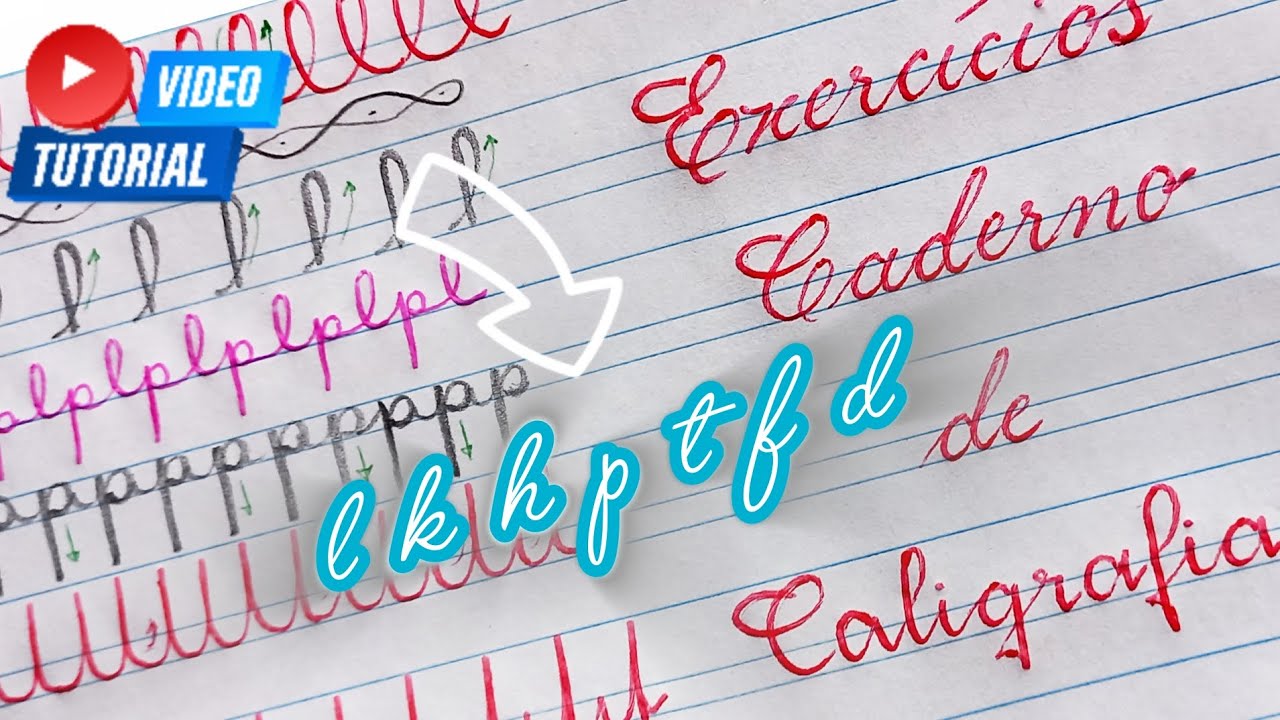 VIDEO
TUTORIAL
Exercícios
Caderno
de
Caligrafia
l k h p t f d
lplplplplpl
pppppppppp